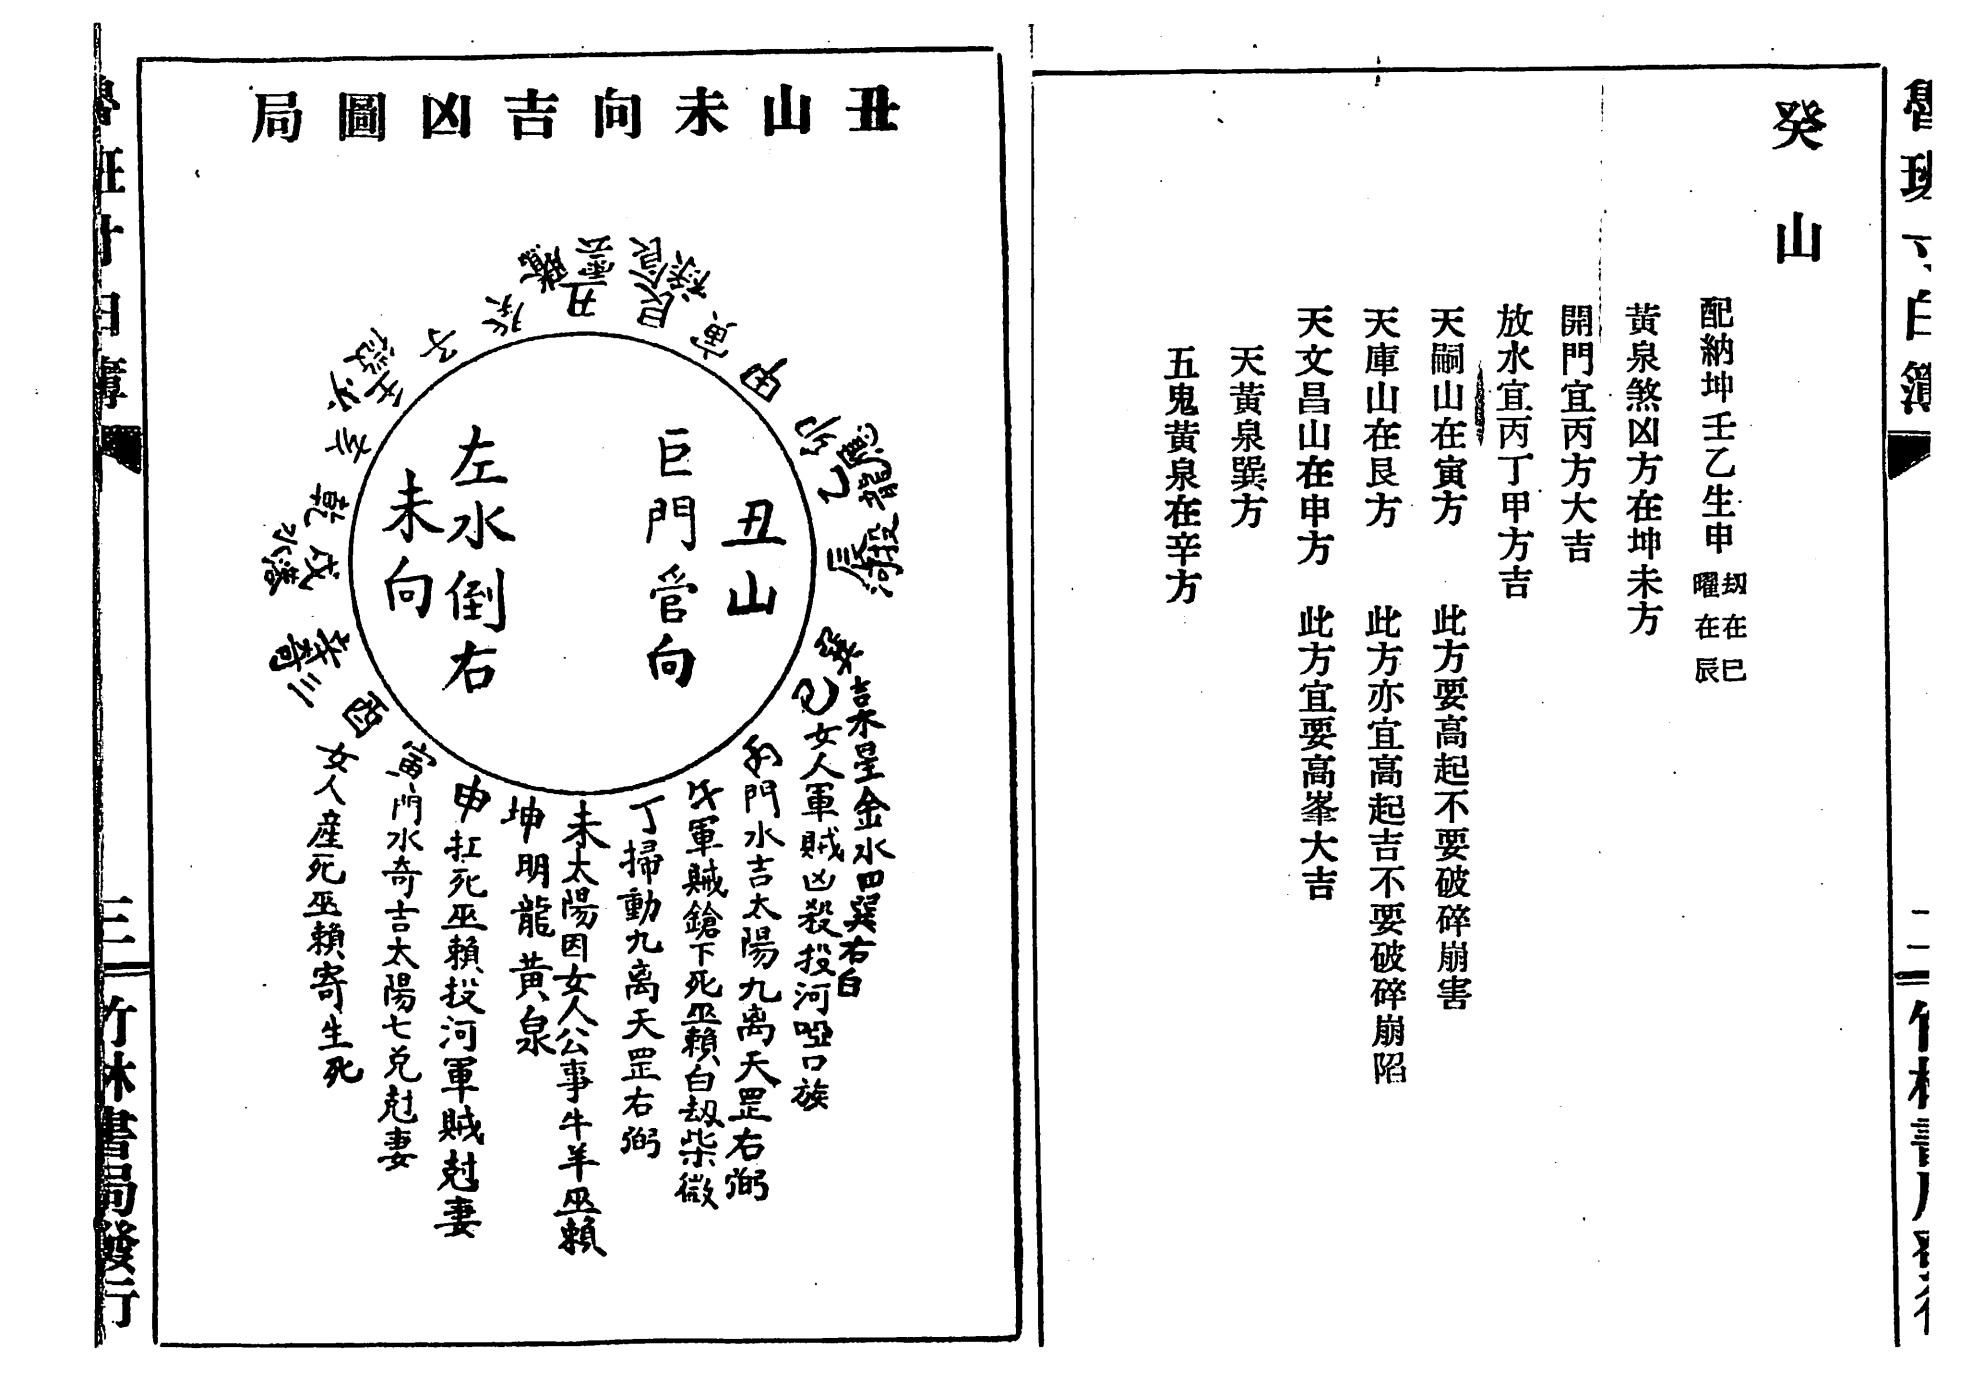 魯班寸白簿
二
竹林書局發行
癸山
配納坤壬乙生申
劫在巳
曜在辰
黃泉煞凶方在坤未方
開門宜丙方大吉
放水宜丙丁甲方吉
天嗣山在寅方 此方要高起不要破碎崩害
天庫山在艮方 此方亦宜高起吉不要破碎崩陷
天文昌山在申方 此方宜要高峯大吉
天黃泉巽方
五鬼黃泉在辛方
丑山未向吉凶圖局
丑山
巨門管向
左水倒右
未向
丑
艮
寅
甲
卯
乙
辰
投河
巽吉水星金水四巽右白
巳女人軍賊凶殺投河啞口族
門水吉太陽九离天罡右弼
軍賊鎗下死巫賴白劫柴微
丁掃動九离天罡右弼
未太陽因女人公事牛羊巫賴
坤明龍黃泉
申扛死巫賴投河軍賊尅妻
寅門水奇吉太陽七兌尅妻
酉女人産死巫賴寄生死
戌
乾
壬
子
癸
魯班寸白簿
三
竹林書局發行